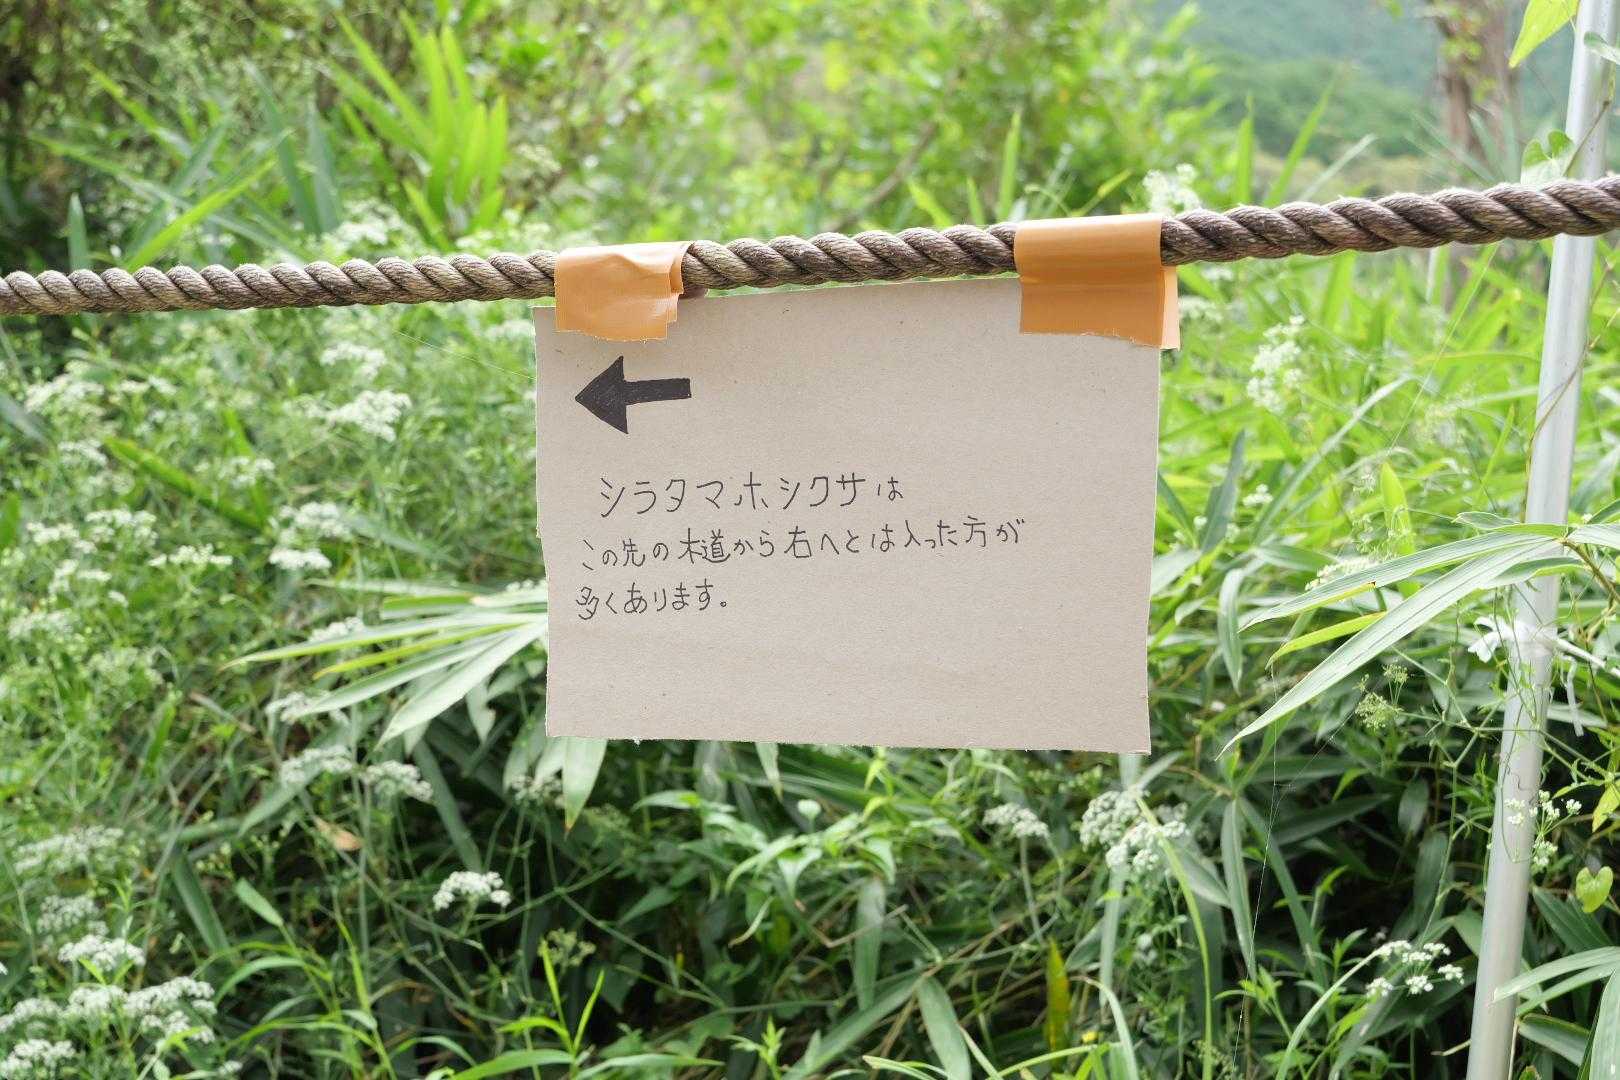 シラタマホシクサは
この先の木道から右へとは入った方が
多くあります。